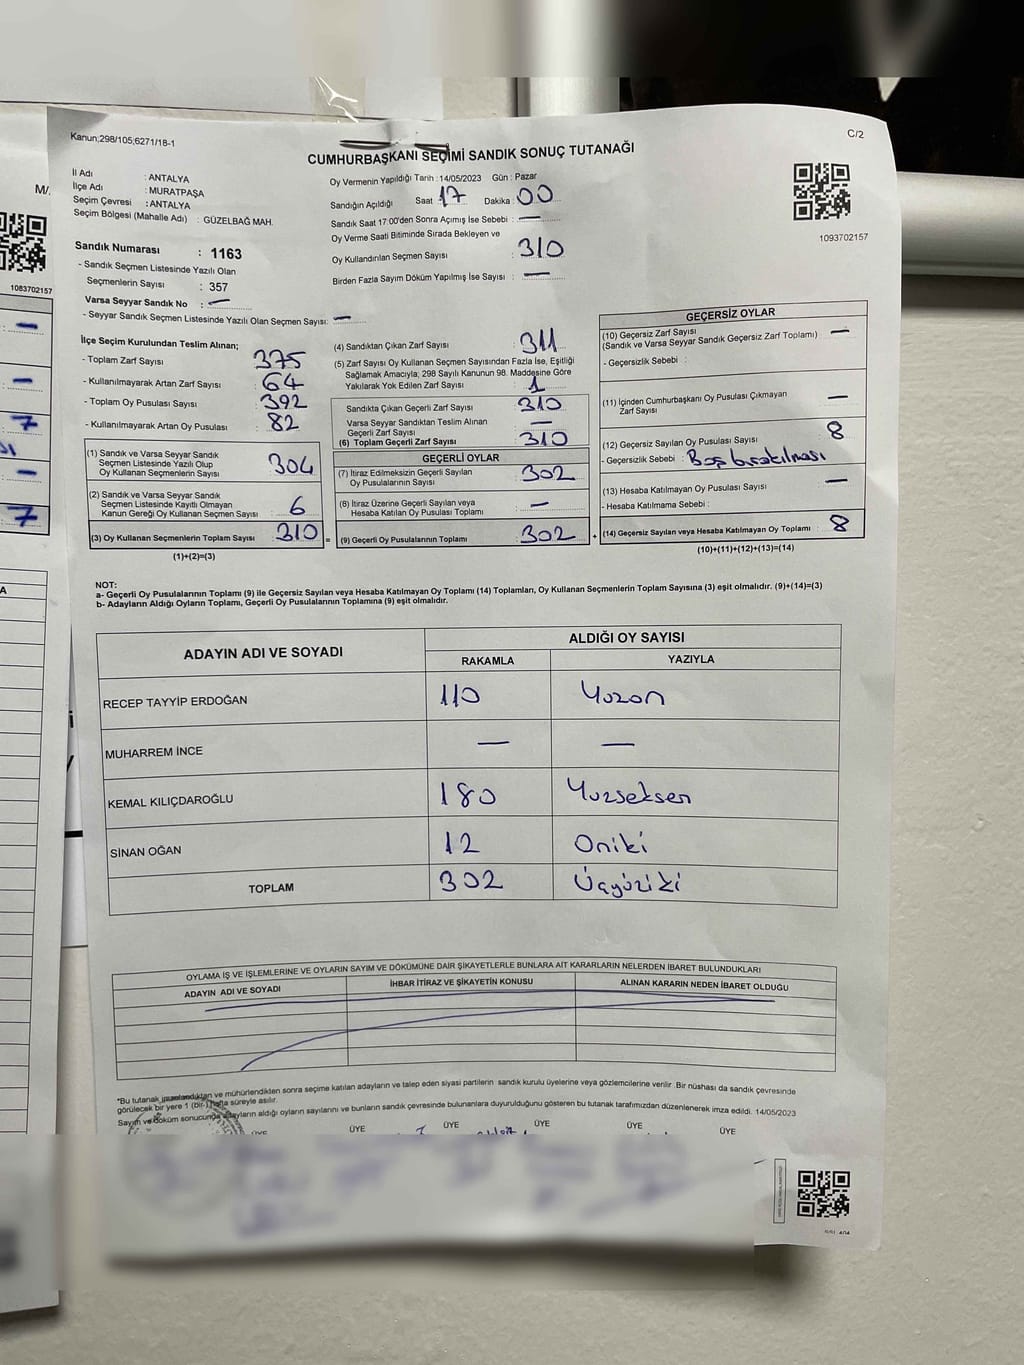 Kanun;298/105;6271/18-1
C/2
CUMHURBAŞKANI SEÇİMİ SANDIK SONUÇ TUTANAĞI
İl Adı : ANTALYA
İlçe Adı : MURATPAŞA
Seçim Çevresi : ANTALYA
Seçim Bölgesi (Mahalle Adı) : GÜZELBAĞ MAH.
Sandık Numarası : 1163
- Sandık Seçmen Listesinde Yazılı Olan
Seçmenlerin Sayısı : 357
Varsa Seyyar Sandık No : —
- Seyyar Sandık Seçmen Listesinde Yazılı Olan Seçmen Sayısı: —
Oy Vermenin Yapıldığı Tarih :14/05/2023 Gün : Pazar
Sandığın Açıldığı Saat : 17 Dakika : 00
Sandık Saat 17:00'den Sonra Açımış İse Sebebi : —
Oy Verme Saati Bitiminde Sırada Bekleyen ve
Oy Kullandırılan Seçmen Sayısı : 310
Birden Fazla Sayım Döküm Yapılmış İse Sayısı : —
1093702157
M/
1083702157
İlçe Seçim Kurulundan Teslim Alınan;
- Toplam Zarf Sayısı : 375
- Kullanılmayarak Artan Zarf Sayısı : 64
- Toplam Oy Pusulası Sayısı : 392
- Kullanılmayarak Artan Oy Pusulası : 82
(1) Sandık ve Varsa Seyyar Sandık
Seçmen Listesinde Yazılı Olup
Oy Kullanan Seçmenlerin Sayısı : 304
(2) Sandık ve Varsa Seyyar Sandık
Seçmen Listesinde Kayıtlı Olmayan
Kanun Gereği Oy Kullanan Seçmen Sayısı : 6
(3) Oy Kullanan Seçmenlerin Toplam Sayısı : 310
(1)+(2)=(3)
(4) Sandıktan Çıkan Zarf Sayısı : 311
(5) Zarf Sayısı Oy Kullanan Seçmen Sayısından Fazla İse, Eşitliği
Sağlamak Amacıyla; 298 Sayılı Kanunun 98. Maddesine Göre
Yakılarak Yok Edilen Zarf Sayısı : 1
Sandıkta Çıkan Geçerli Zarf Sayısı : 310
Varsa Seyyar Sandıktan Teslim Alınan
Geçerli Zarf Sayısı : —
(6) Toplam Geçerli Zarf Sayısı : 310
GEÇERLİ OYLAR
(7) İtiraz Edilmeksizin Geçerli Sayılan
Oy Pusulalarının Sayısı : 302
(8) İtiraz Üzerine Geçerli Sayılan veya
Hesaba Katılan Oy Pusulası Toplamı : —
(9) Geçerli Oy Pusulalarının Toplamı : 302
GEÇERSİZ OYLAR
(10) Geçersiz Zarf Sayısı : —
(Sandık ve Varsa Seyyar Sandık Geçersiz Zarf Toplamı)
- Geçersizlik Sebebi :
(11) İçinden Cumhurbaşkanı Oy Pusulası Çıkmayan
Zarf Sayısı : —
(12) Geçersiz Sayılan Oy Pusulası Sayısı : 8
- Geçersizlik Sebebi : Boş bırakılması
(13) Hesaba Katılmayan Oy Pusulası Sayısı : —
- Hesaba Katılmama Sebebi :
(14) Geçersiz Sayılan veya Hesaba Katılmayan Oy Toplamı : 8
(10)+(11)+(12)+(13)=(14)
NOT:
a- Geçerli Oy Pusulalarının Toplamı (9) ile Geçersiz Sayılan veya Hesaba Katılmayan Oy Toplamı (14) Toplamları, Oy Kullanan Seçmenlerin Toplam Sayısına (3) eşit olmalıdır. (9)+(14)=(3)
b- Adayların Aldığı Oyların Toplamı, Geçerli Oy Pusulalarının Toplamına (9) eşit olmalıdır.
ADAYIN ADI VE SOYADI
ALDIĞI OY SAYISI
RAKAMLA YAZIYLA
RECEP TAYYİP ERDOĞAN 110 Yuzon
MUHARREM İNCE — —
KEMAL KILIÇDAROĞLU 180 Yuzseksen
SİNAN OĞAN 12 Oniki
TOPLAM 302 Üçyüziki
OYLAMA İŞ VE İŞLEMLERİNE VE OYLARIN SAYIM VE DÖKÜMÜNE DAİR ŞİKAYETLERLE BUNLARA AİT KARARLARIN NELERDEN İBARET BULUNDUKLARI
ADAYIN ADI VE SOYADI İHBAR İTİRAZ VE ŞİKAYETİN KONUSU ALINAN KARARIN NEDEN İBARET OLDUĞU
*Bu tutanak imzalandıktan ve mühürlendikten sonra seçime katılan adayların ve talep eden siyasi partilerin sandık kurulu üyelerine veya gözlemcilerine verilir. Bir nüshası da sandık çevresinde
görülecek bir yere 1 (bir) hafta süreyle asılır.
Sayım ve döküm sonucunda adayların aldığı oyların sayılarını ve bunların sandık çevresinde bulunanlara duyurulduğunu gösteren bu tutanak tarafımızdan düzenlenerek imza edildi. 14/05/2023
ÜYE ÜYE ÜYE ÜYE ÜYE ÜYE